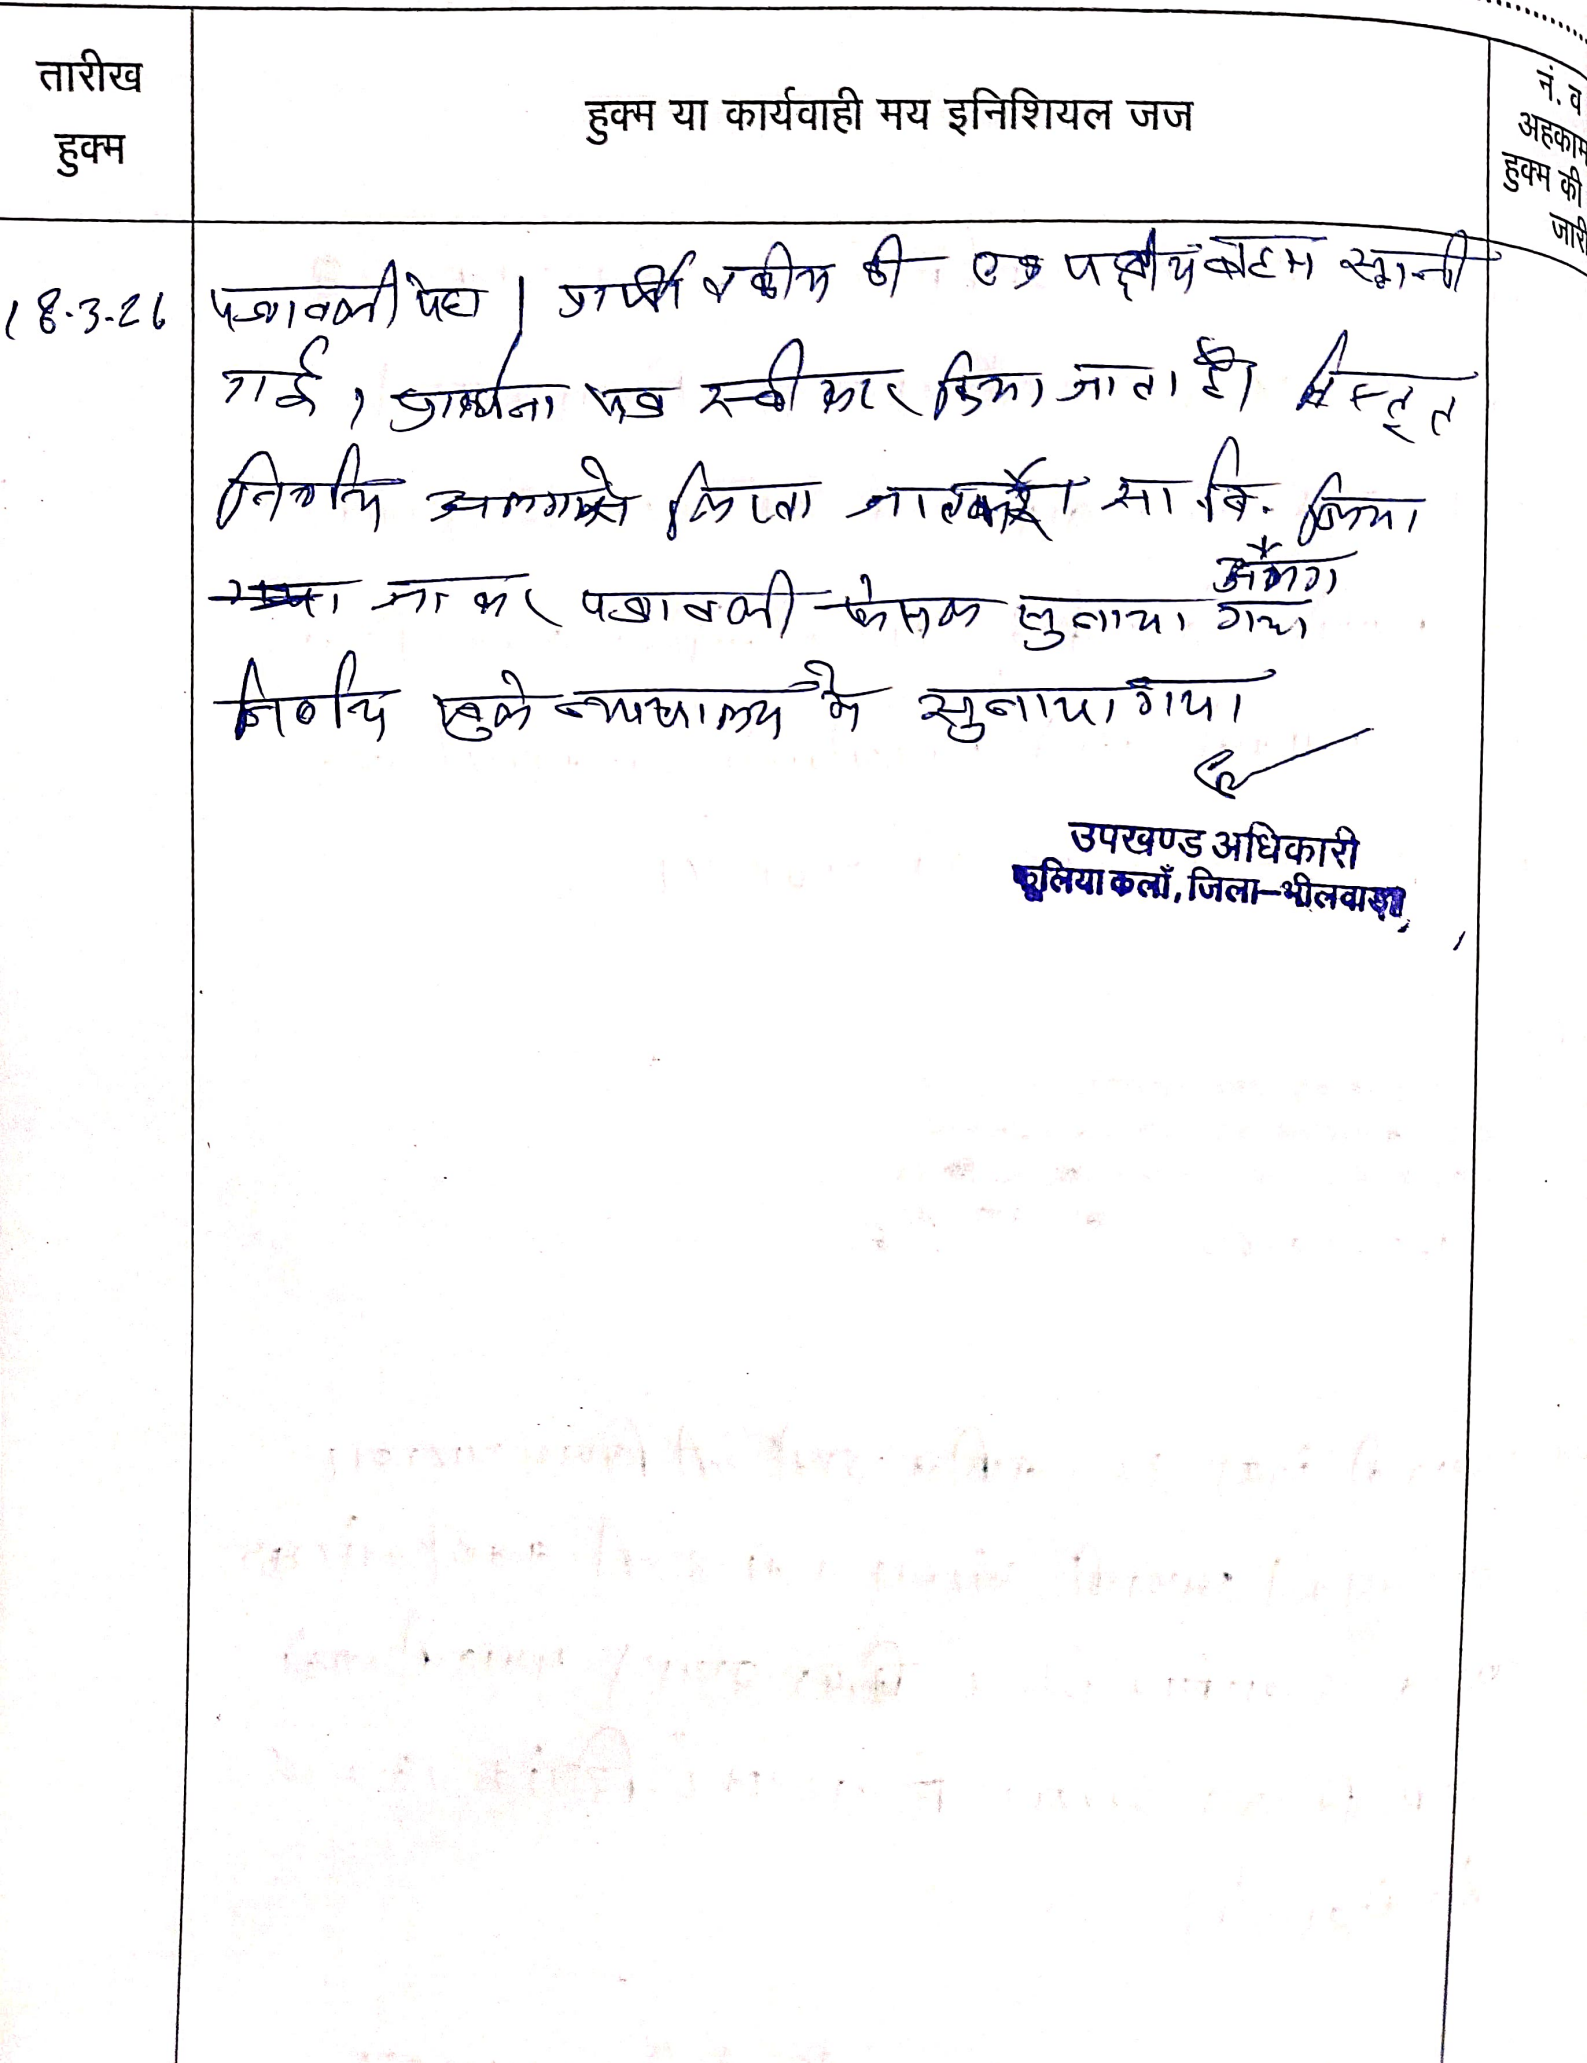 तारीख
हुक्म
हुक्म या कार्यवाही मय इनिशियल जज
नं. व
अहकाम
हुक्म की
जारी
18.3.26
पत्रावली पेश। प्रार्थी वकील की एक पक्षीय बहस सुनी
गई। प्रार्थना पत्र स्वीकार किया जाता है। विस्तृत
निर्णय अलग से लिखा जाकर सा. वि. किया
जाकर पत्रावली फैसल सुनाया गया
निर्णय खुले न्यायालय में सुनाया गया।
उपखण्ड अधिकारी
फूलिया कलाँ, जिला-भीलवाड़ा